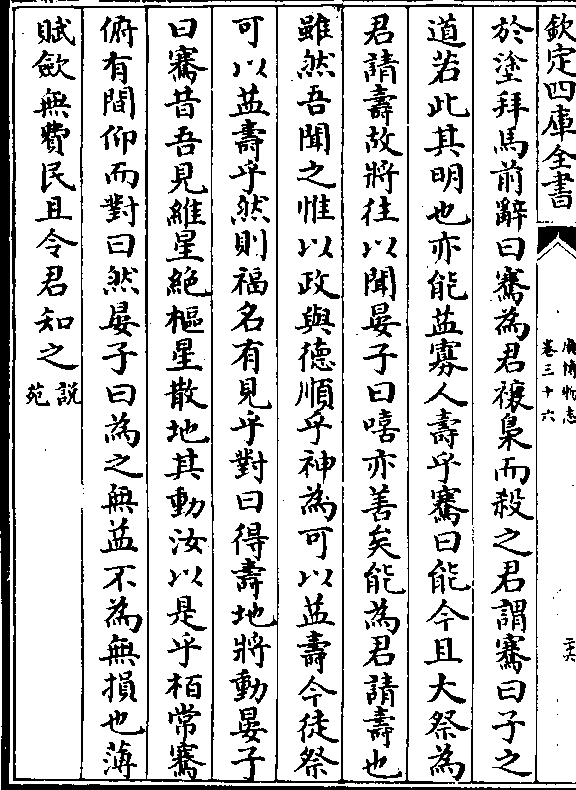 欽定四庫全書
廣博物志
卷三十六
二六
於塗拜馬前辭曰騫為君禳梟而殺之君謂騫曰子之
道若此其明也亦能益寡人壽乎騫曰能今且大祭為
君請壽故將往以聞晏子曰嘻亦善矣能為君請壽也
雖然吾聞之惟以政與德順乎神為可以益壽今徒祭
可以益壽乎然則福名有見乎對曰得壽地將動晏子
曰騫昔吾見維星絶樞星散地其動汝以是乎柏常騫
俯有間仰而對曰然晏子曰為之無益不為無損也薄
賦斂無費民且令君知之說苑